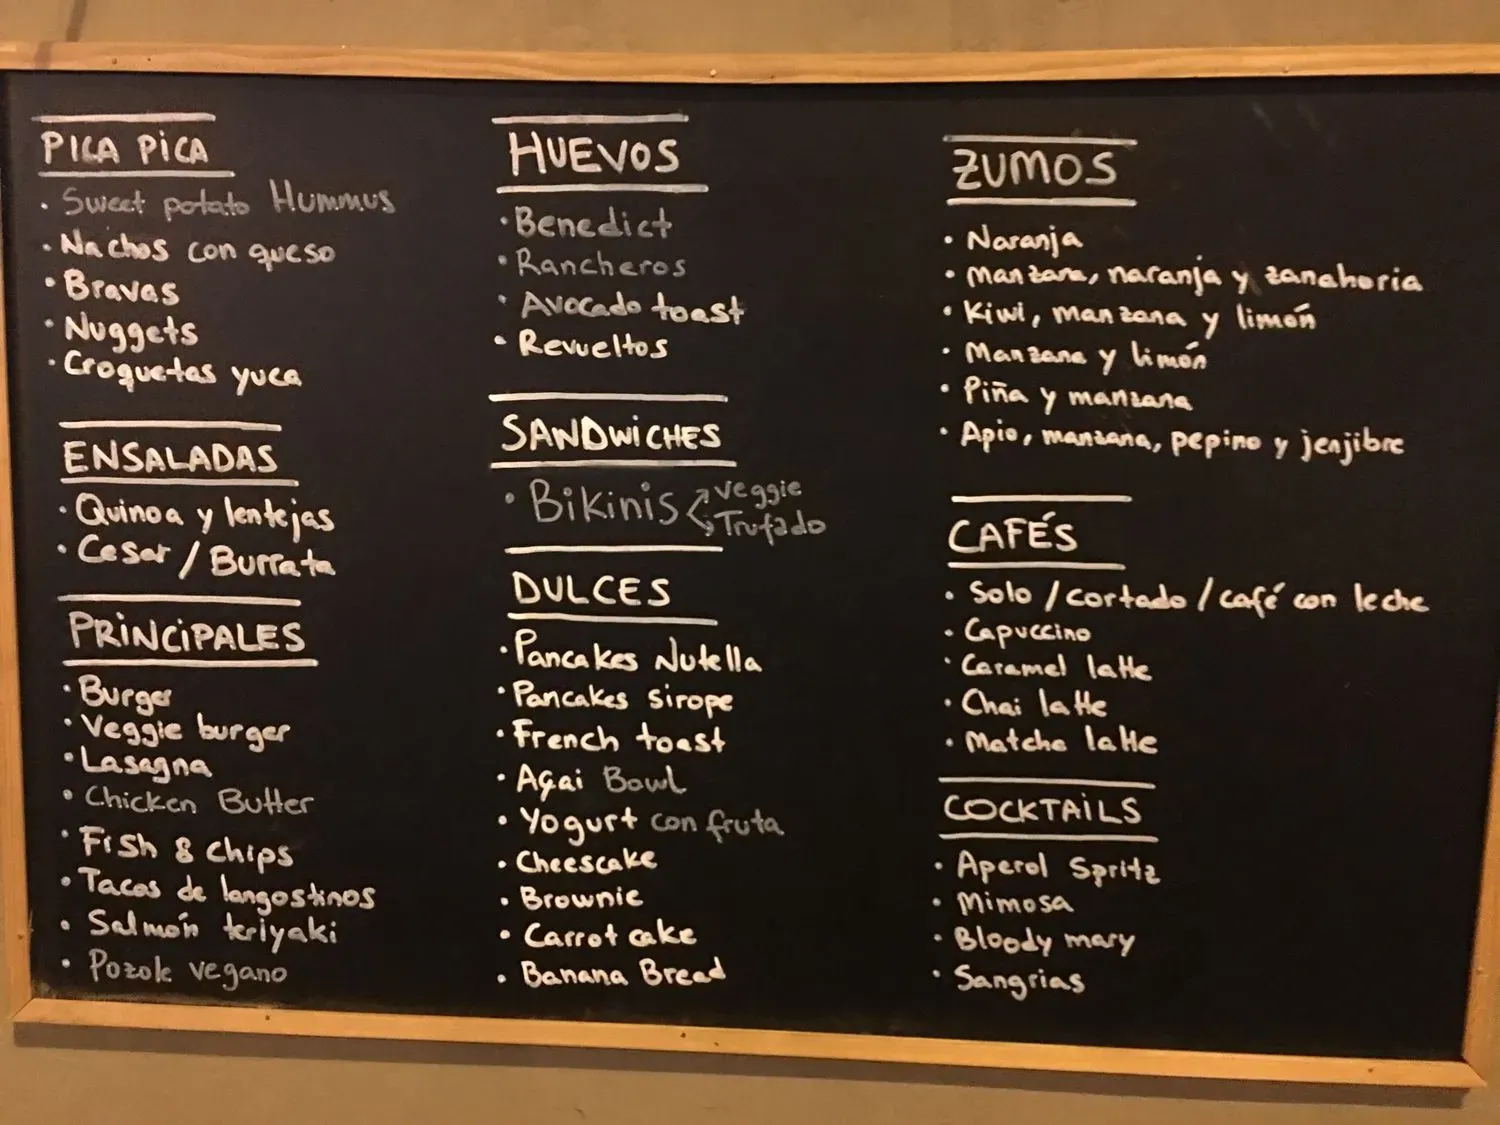 PICA PICA
· Sweet potato Hummus
· Nachos con queso
· Bravas
· Nuggets
· Croquetas yuca
ENSALADAS
· Quinoa y lentejas
· Cesar / Burrata
PRINCIPALES
· Burger
· Veggie burger
· Lasagna
· Chicken Butter
· Fish & chips
· Tacos de langostinos
· Salmón teriyaki
· Pozole vegano
HUEVOS
· Benedict
· Rancheros
· Avocado toast
· Revueltos
SANDWICHES
· Bikinis
veggie
Trufado
DULCES
· Pancakes Nutella
· Pancakes sirope
· French toast
· Açai Bowl
· Yogurt con fruta
· Cheescake
· Brownie
· Carrot cake
· Banana Bread
ZUMOS
· Naranja
· Manzana, naranja y zanahoria
· Kiwi, manzana y limón
· Manzana y limón
· Piña y manzana
· Apio, manzana, pepino y jenjibre
CAFÉS
· Solo / cortado / café con leche
· Capuccino
· Caramel latte
· Chai latte
· Matcha latte
COCKTAILS
· Aperol Spritz
· Mimosa
· Bloody mary
· Sangrias